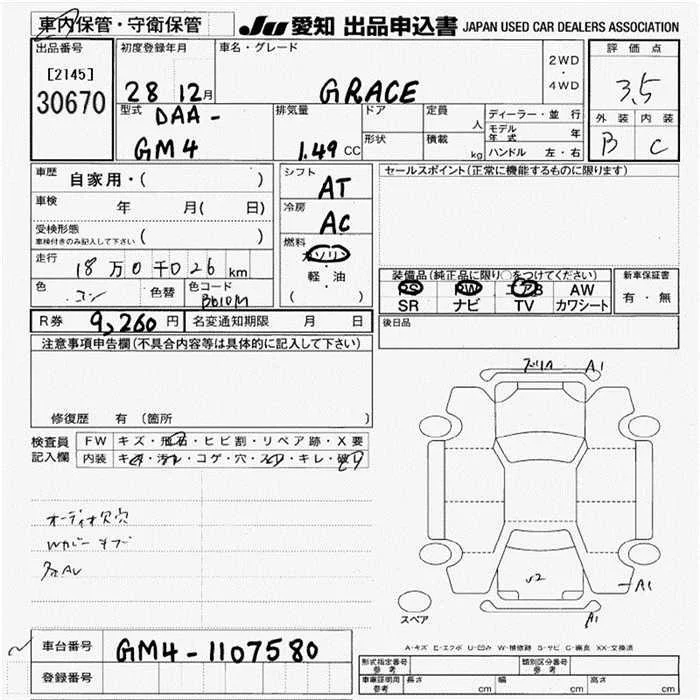 車内保管・守衛保管
JU 愛知 出品申込書 JAPAN USED CAR DEALERS ASSOCIATION
出品番号 初度登録年月 車名・グレード 2WD・4WD 評価点
[2145]
30670
28 12月 GRACE 3.5
型式 DAA- 排気量 ドア 定員 人 ディーラー・並行 外装 内装
GM4 1.49 CC 形状 積載 kg モデル年式 年 B C
ハンドル 左・右
車歴 自家用・( ) シフト AT セールスポイント(正常に機能するものに限ります)
車検 年 月( 日) 冷房 AC
受検形態 ( )
車検付きのみ記入して下さい
燃料 ガソリン
走行 18万0千026km 軽・油
( )
色 色替 色コード B610M
装備品(純正品に限り○をつけてください) 新車保証書
PS PW エアB AW 有・無
SR ナビ TV カワシート
R券 9,260円 名変通知期限 月 日 後日品
注意事項申告欄(不具合内容等は具体的に記入して下さい)
修復歴 有(箇所
検査員記入欄 FW キズ・飛石・ヒビ割・リペア跡・X要
内装 キズ・汚れ・コゲ・穴・スレ・キレ・破れ
オーディオ欠穴
A1
√2
A1
A1
スペア
車台番号 GM4-1107580
登録番号
A-キズ E-エクボ U-凹み W-補修跡 S-サビ C-腐食 XX-交換済
形式指定番号 参考 類別区分番号 参考
車庫証明用 参考 長さ cm 幅 cm 高さ cm